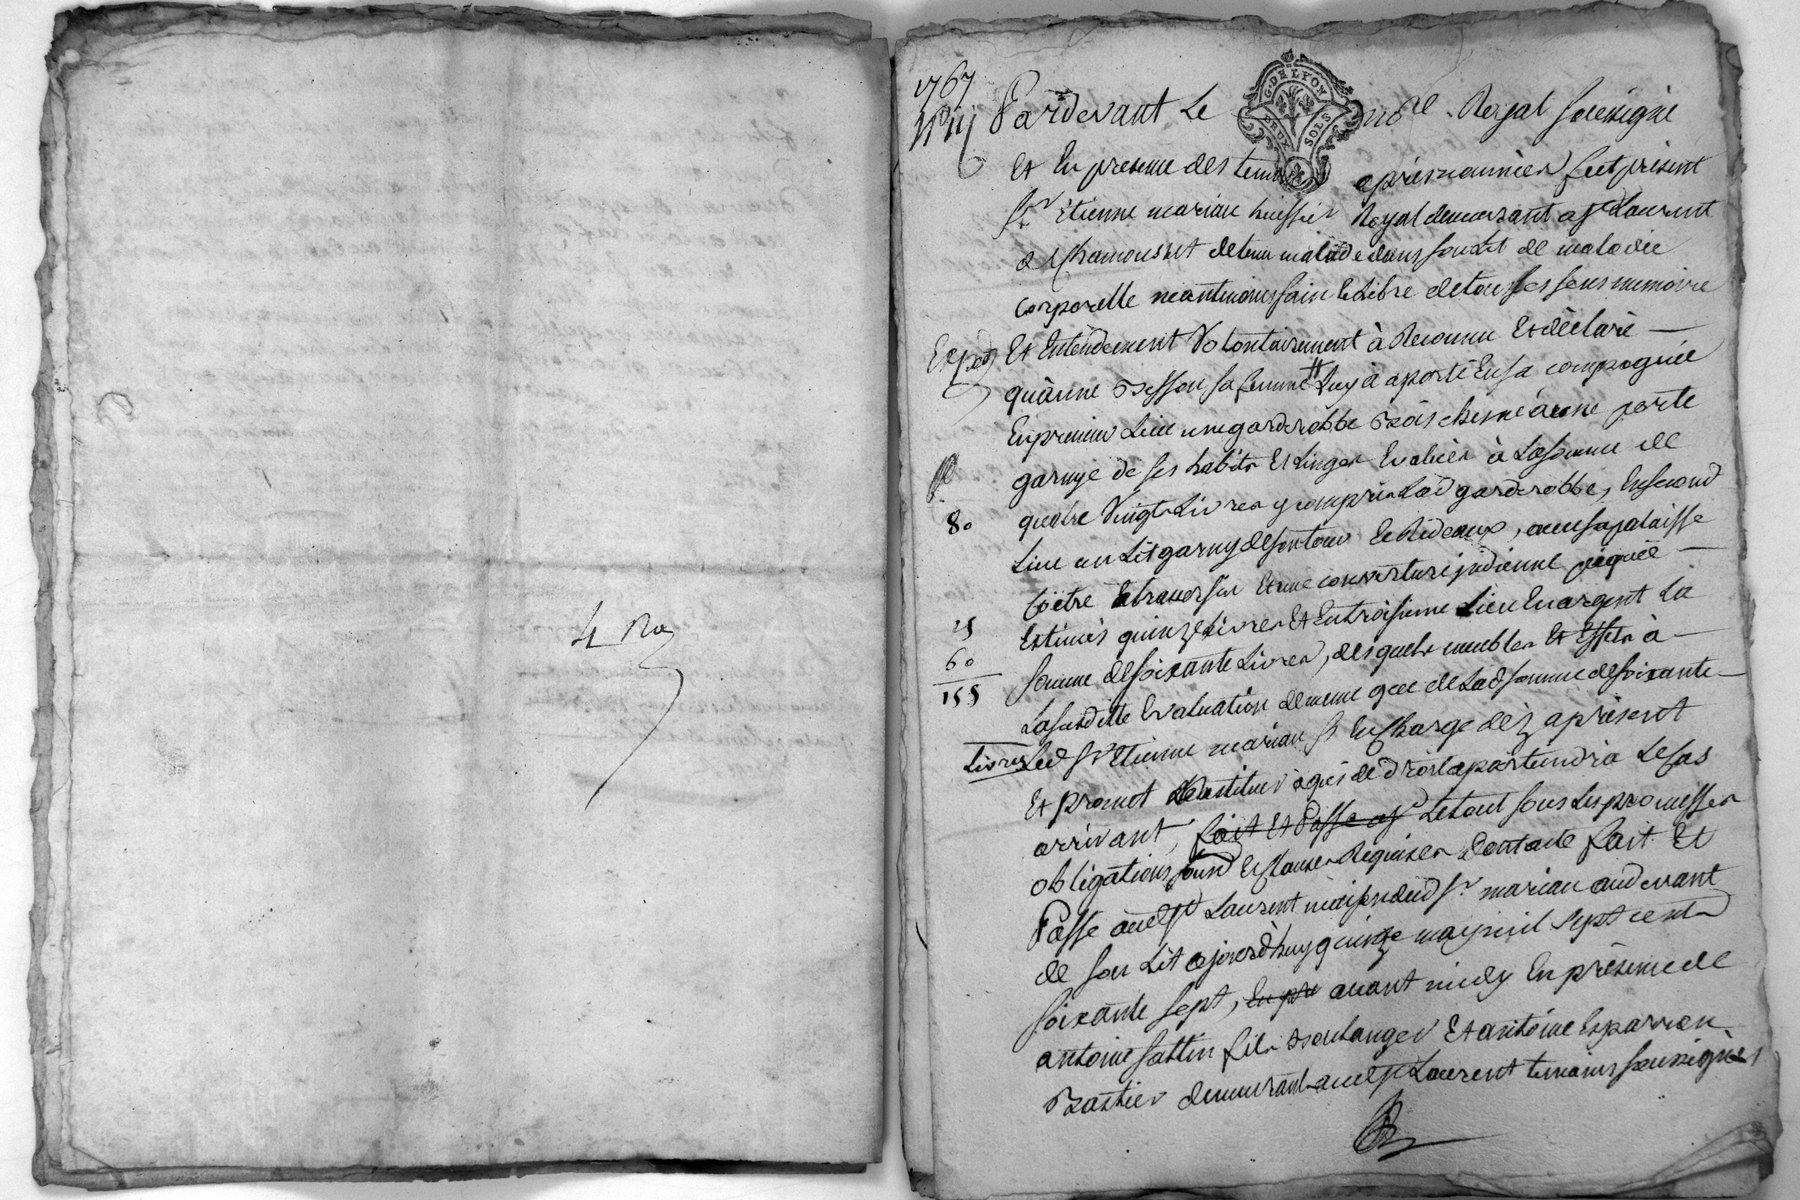 1767
Pardevant Le
G. DE LYON
DEUX SOLS
Royal soussigné
Et En presence des temoins aprés nommés fut présent
Sr Etienne marian huissier Royal demeurant a St Laurent
de Chamousset detenu malade dans son Lit de maladie
corporelle neantmoins sain et Libre de tous ses sens memoire
Exped
Et Entendement Volontairement à Reconnu Et déclaré
qu'anne sa femme # Luy à aporté En sa compagnie
En premier Lieu une garderobbe Bois chesne à une porte
garnye de ses habits Et Linges Evalués à La somme de
80
quatre Vingts Livres y compris Lad garderobbe, En second
Lieu un Lit garny de son tour Et Rideaux, avec sa palaisse
Coëtre Et traversin Et une couverture jndienne piquée
15
Estimés quinze Livres Et En troisieme Lieu En argent La
60
somme de soixante Livres, desquels meubles Et Effets à
155
La susditte Evaluation de meme que de Lad somme de soixante
Livres
Led Sr Etienne marian s'En Charge dez apresent
Et promet Restituer a qui de droit apartiendra Le Cas
arrivant, fait Et Passé a St Le tout sous Les promesses
obligations soumd Et Clauses Requises Dont acte fait Et
Passé aud St Laurent maison dud Sr marian au devant
de son Lit aujourd'huy quinze may mil sept cents
soixante sept, En pre avant midy En présence de
antoine fils Boulanger Et antoine
demeurants aud St Laurent temoins soussignés
4